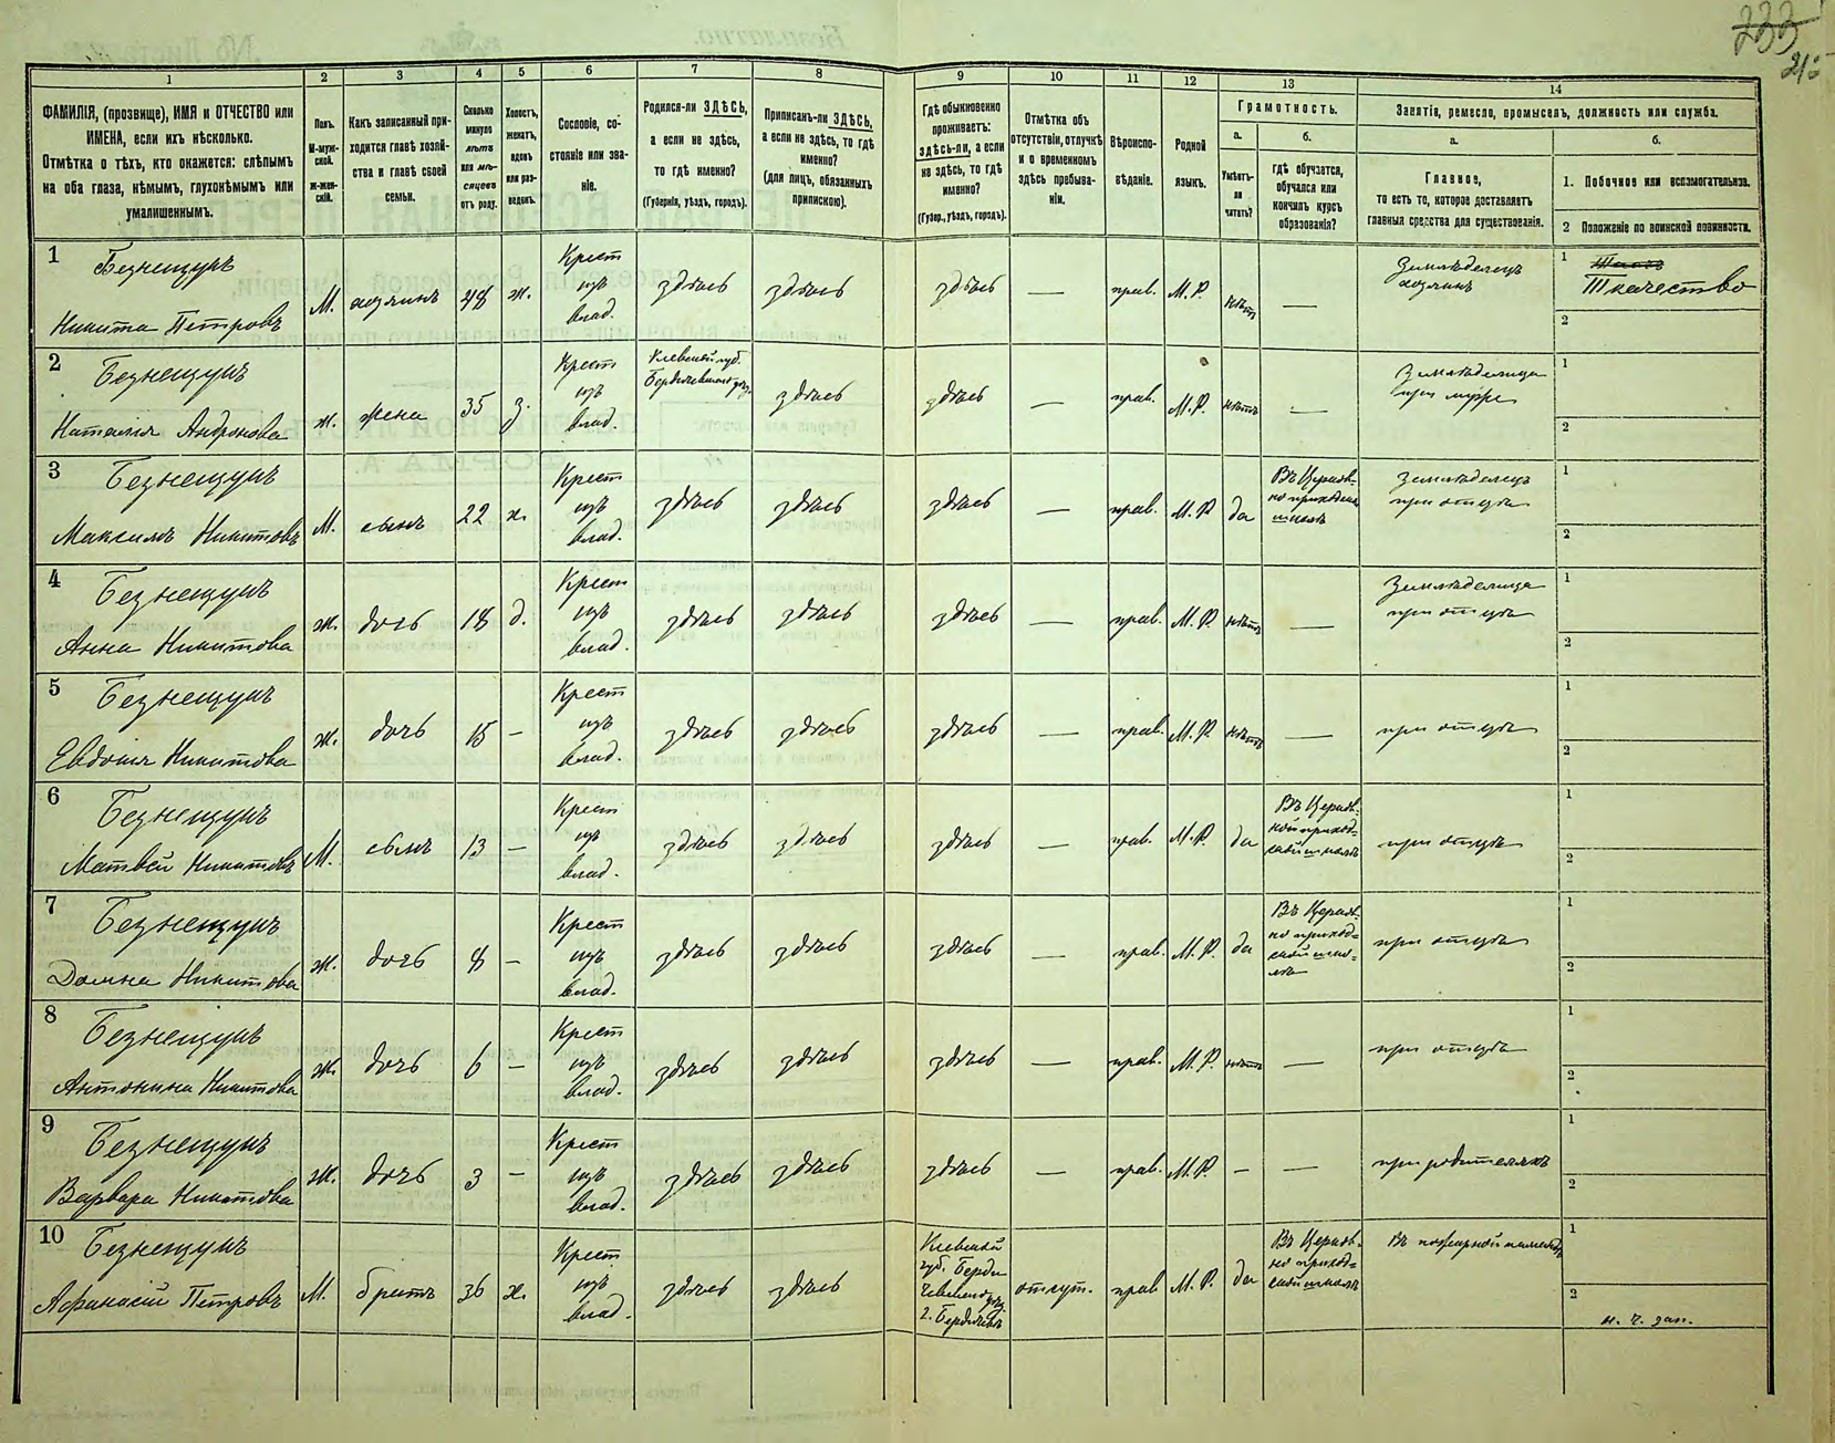 233
215
1
2
3
4
5
6
7
8
9
10
11
12
13
14
ФАМИЛІЯ, (прозвище), ИМЯ и ОТЧЕСТВО или
ИМЕНА, если ихъ нѣсколько.
Отмѣтка о тѣхъ, кто окажется: слѣпымъ
на оба глаза, нѣмымъ, глухонѣмымъ или
умалишеннымъ.
Полъ.
М-муж-
ской.
Ж-жен-
скій.
Какъ записанный при-
ходится главѣ хозяй-
ства и главѣ своей
семьи.
Сколько
минуло
лѣтъ
или мѣ-
сяцевъ
отъ роду.
Холостъ,
женатъ,
вдовъ
или раз-
веденъ.
Сословіе, со-
стояніе или зва-
ніе.
Родился-ли ЗДѢСЬ,
а если не здѣсь,
то гдѣ именно?
(Губернія, уѣздъ, городъ).
Приписанъ-ли ЗДѢСЬ,
а если не здѣсь, то гдѣ
именно?
(для лицъ, обязанныхъ
припискою).
Гдѣ обыкновенно
проживаетъ:
здѣсь-ли, а если
не здѣсь, то гдѣ
именно?
(Губер., уѣздъ, городъ).
Отмѣтка объ
отсутствіи, отлучкѣ
и о временномъ
здѣсь пребыва-
ніи.
Вѣроиспо-
вѣданіе.
Родной
языкъ.
Грамотность.
а.
Умѣетъ-
ли
читать?
б.
гдѣ обучается,
обучался или
кончилъ курсъ
образованія?
Занятія, ремесло, промыселъ, должность или служба.
а.
Главное,
то есть то, которое доставляетъ
главныя средства для существованія.
б.
1. Побочное или вспомогательное.
2 Положеніе по воинской повинности.
1 Безнещукъ
Никита Петровъ
М. хозяинъ 48 ж. Крест изъ влад. здѣсь здѣсь здѣсь — прав. М. Р. нѣтъ — Земледѣлецъ хозяинъ 1 Ткачество 2
2 Безнещукъ
Наталія Андронова
ж. жена 35 з. Крест изъ влад. Кіевской губ. Бердичевского уѣз. здѣсь здѣсь — прав. М. Р. нѣтъ — Земледѣлица при мужѣ 1 2
3 Безнещукъ
Максимъ Никитовъ
М. сынъ 22 х. Крест изъ влад. здѣсь здѣсь здѣсь — прав. М. Р. да Въ Церков-но приходск школѣ Земледѣлецъ при отцѣ 1 2
4 Безнещукъ
Анна Никитова
ж. дочь 18 д. Крест изъ влад. здѣсь здѣсь здѣсь — прав. М. Р. нѣтъ — Земледѣлица при отцѣ 1 2
5 Безнещукъ
Евдокія Никитова
ж. дочь 15 — Крест изъ влад. здѣсь здѣсь здѣсь — прав. М. Р. нѣтъ — при отцѣ 1 2
6 Безнещукъ
Матвей Никитовъ
М. сынъ 13 — Крест изъ влад. здѣсь здѣсь здѣсь — прав. М. Р. да Въ Церков-ной приход-ской школѣ при отцѣ 1 2
7 Безнещукъ
Домна Никитова
ж. дочь 8 — Крест изъ влад. здѣсь здѣсь здѣсь — прав. М. Р. да Въ Церков-но приход=ской шко=лѣ при отцѣ 1 2
8 Безнещукъ
Антонина Никитова
ж. дочь 6 — Крест изъ влад. здѣсь здѣсь здѣсь — прав. М. Р. нѣтъ — при отцѣ 1 2
9 Безнещукъ
Варвара Никитова
ж. дочь 3 — Крест изъ влад. здѣсь здѣсь здѣсь — прав. М. Р. — — при родителяхъ 1 2
10 Безнещукъ
Афанасій Петровъ
М. братъ 36 х. Крест изъ влад. здѣсь здѣсь Кіевской губ. Берди чевского уѣз. г. Бердичевъ отсут. прав М. Р. да Въ Церков-но приход=ской школѣ Въ пожарной 1 2 н. ч. зап.